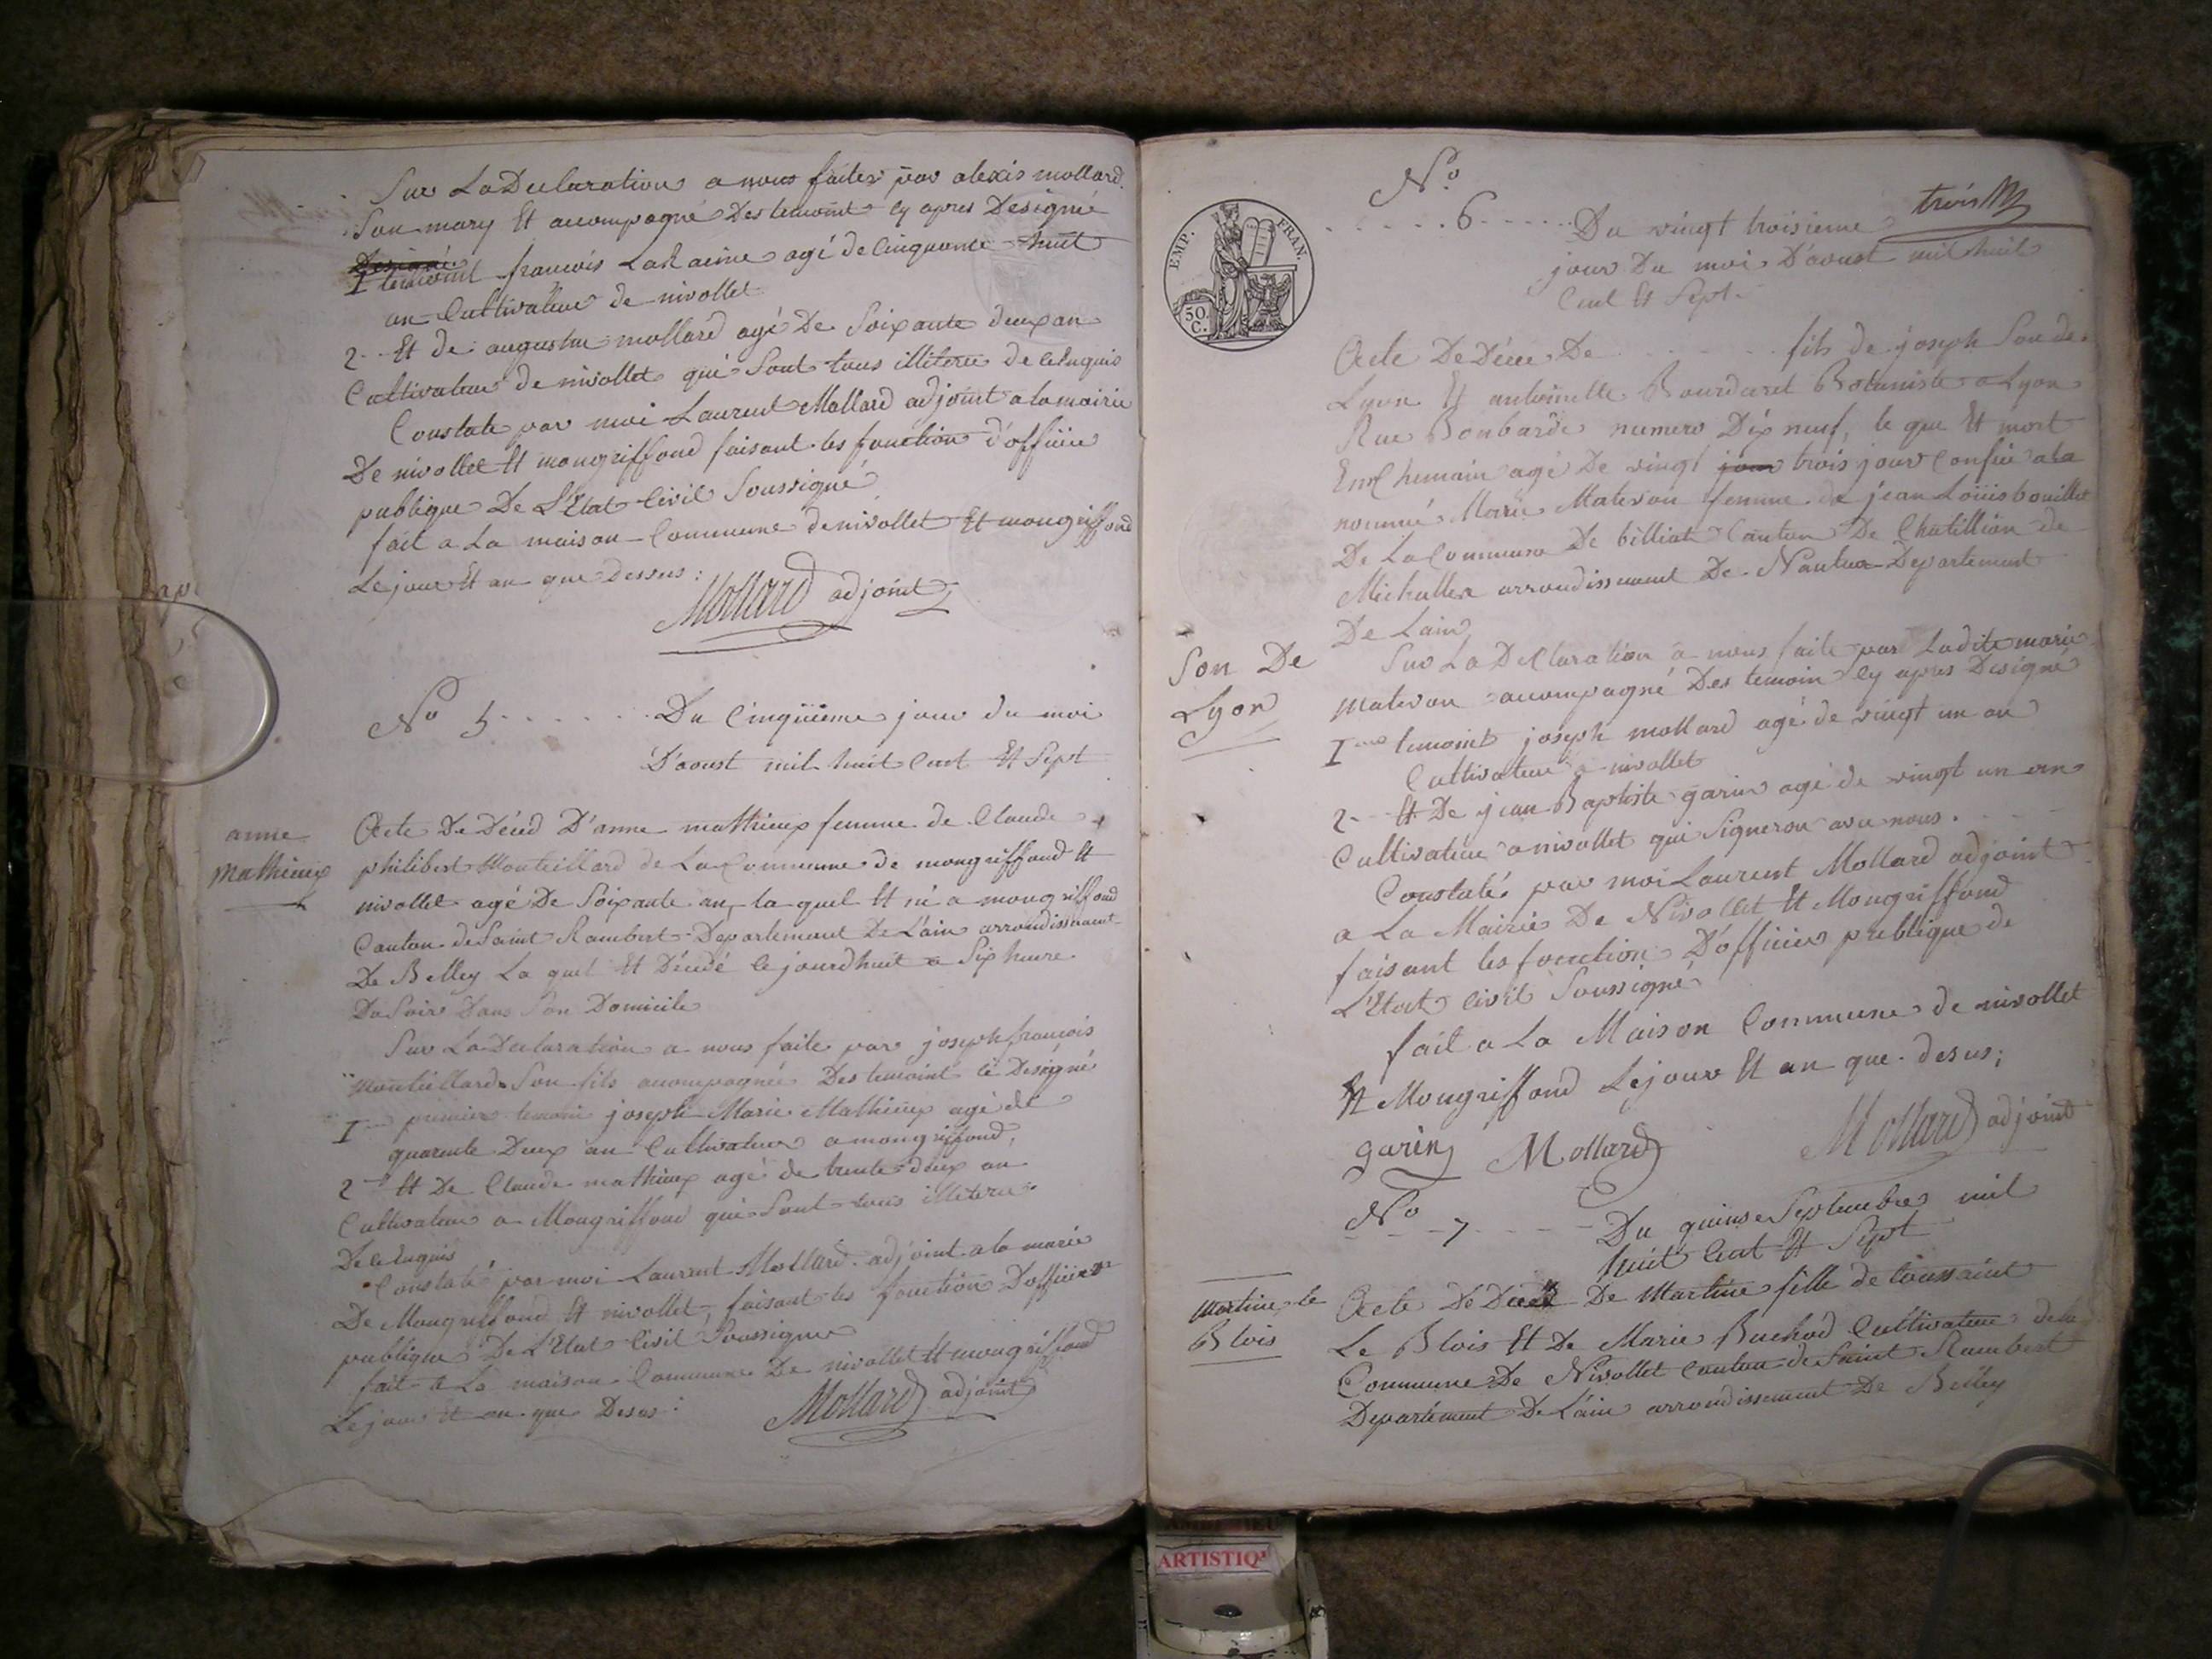 Sur La Declaration a nous faites par alexis mollard
Son mary Et accompagné Des temoint cy apres Designé
Designé
I temoint francois LaRacine agé de Cinquante huit
an Cultivateur de nivollet
2 Et de augustin mollard agé De Soixante deux an
Cultivateur de nivollet qui Sont tous illiteré de ce Enquis
Constate par moi Laurent Mollard adjoint a la mairie
De nivollet Et mongriffond faisant les fonction d'officier
publique De L'Etat Civil Soussigné
fait a La maison Commune de nivollet Et mongriffond
Le jour Et an que Dessus :
Mollard adjoint
No 5 Du Cinquieme jour du moi
D'aoust mil huit Cent Et Sept
anne
mathieux
Acte De Déced D'anne mathieux femme de Claude
philibert Monteillard de La Commune de mongriffond Et
nivollet agé De Soixante an, la quel Et né a mongriffond
Canton de Saint Rambert Departement De L'ain arrondissement
De Belley La quel Et Décédé le jourdhuit a Six heure
Du Soir Dans Son Domicile
Sur La Declaration a nous faite par joseph francois
Monteillard Son fils accompagné Des temoint ci Designé
I premier temoin joseph Marie Mathieux agé de
quarente Deux an Cultivateur a mongriffond,
2 Et De Claude mathieux agé de trente deux an
Cultivateur a Mongriffond qui Sont tous illiteré
De ce Enquis
Constaté par moi Laurent Mollard adjoint a la marie
De Mongriffond Et nivollet, faisant les fonction D'officier
publique De L'Etat Civil Soussigné
fait a La maison Commune De nivollet Et mongriffond
Le jour Et an que Desus :
Mollard adjoint
EMP. FRAN.
50.
C.
No
6 Du vingt troisieme
trois
jour Du moi D'aoust mil huit
Cent Et Sept.
Acte De Déce De fils de joseph Son de
Lyon Et antoinette Bourdaret Botaniste a Lyon
Rue Bonbarde numero Dix neuf, le que Et mort
En Chemain agé De vingt jour trois jour Confié a la
nommé Marie Materon femme de jean Loüis bouillet
De La Commune De billiat Canton De Chatillion de
Michallex arrondissement De Nantua Departement
De Lain
Son De
Lyon
Sur La Declaration a nous faite par Ladite marie
Materon accompagné Des temoin cy apres Designé
I temoint joseph mollard agé de vingt un an
Cultivateur a nivollet
2 Et De jean Baptiste garin agé de vingt un an
Cultivateur a nivollet qui Signeron avec nous.
Constaté par moi Laurent Mollard adjoint
a La Mairie De Nivollet Et Mongriffond
faisant les fonction D'officier publique de
L'Etat Civil Soussigné
fait a La Maison Commune de nivollet
Et Mongriffond Le jour Et an que desus;
garin Mollard Mollard adjoint
No 7 Du quinse Septembre mil
huit Cent Et Sept
Martine le
Blois
Acte De Deced De Martine fille de toussaint
Le Blois Et De Marie Buchod Cultivateur de la
Commune De Nivollet Canton de Saint Rambert
Departement De L'ain arrondissement De Belley
ARTISTIQ